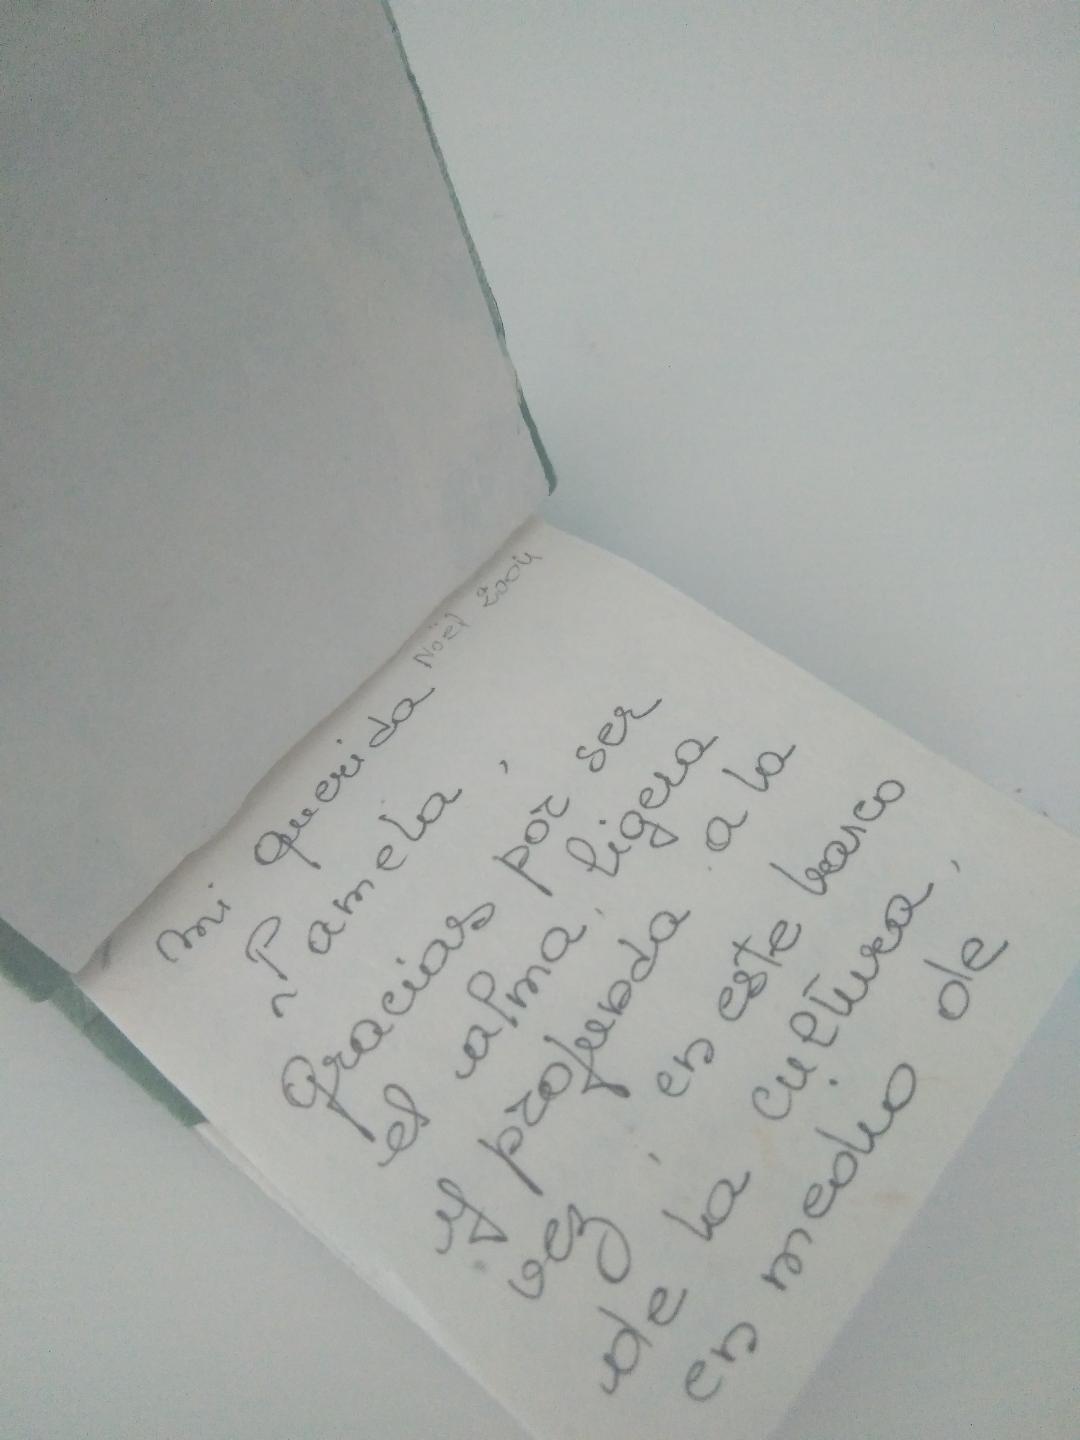 Noël 2004
mi querida
Pamela,
Gracias por ser
el alma, ligera
y profunda a la
vez, en este barco
de la cultura,
en medio de